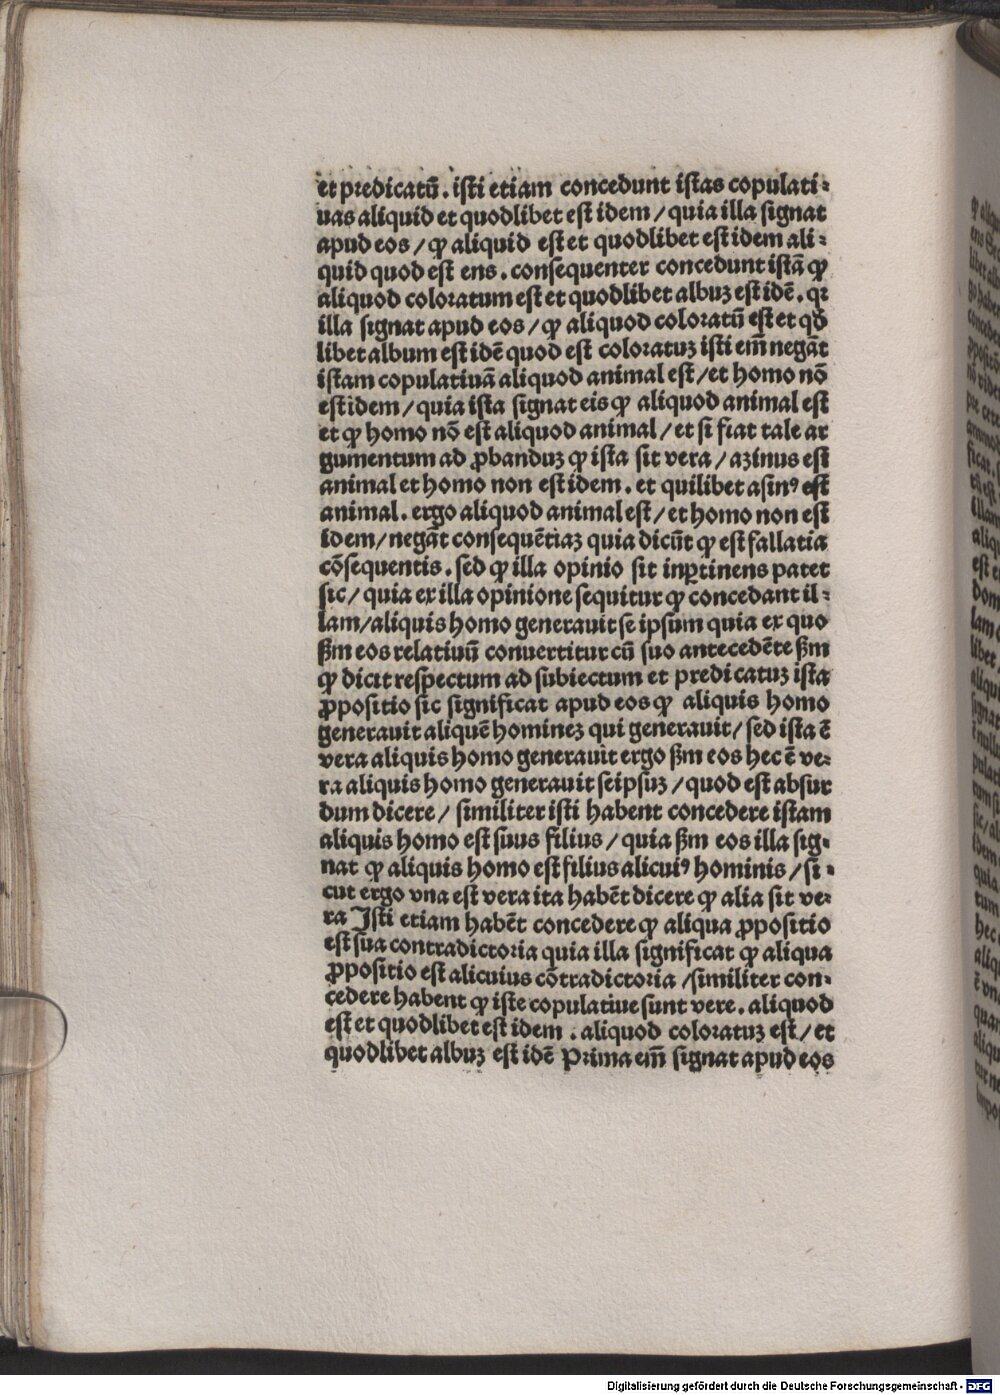 et predicatū. isti etiam concedunt istas copulati⸗
uas aliquid et quodlibet est idem / quia illa signat
apud eos / ꝙ aliquid est et quodlibet est idem ali⸗
quid quod est ens. consequenter concedunt istā ꝙ
aliquod coloratum est et quodlibet albuꝫ est idē. qꝛ
illa signat apud eos / ꝙ aliquod coloratū est et qđ
libet album est idē quod est coloratuꝫ isti em̄ negāt
istam copulatiuā aliquod animal est / et homo nō
est idem / quia ista signat eis ꝙ aliquod animal est
et ꝙ homo nō est aliquod animal / et si fiat tale ar
gumentum ad ꝓbanduꝫ ꝙ ista sit vera / azinus est
animal et homo non est idem. et quilibet asinꝰ est
animal. ergo aliquod animal est / et homo non est
idem / negāt consequētiaꝫ quia dicūt ꝙ est fallatia
cōsequentis. sed ꝙ illa opinio sit inꝑtinens patet
sic / quia ex illa opinione sequitur ꝙ concedant il⸗
lam / aliquis homo generauit se ipsum quia ex quo
ẜm eos relatiuū conuertitur cū suo antecedēte ẜm
ꝙ dicit respectum ad subiectum et predicatuꝫ ista
ꝓpositio sic significat apud eos ꝙ aliquis homo
generauit aliquē hominez qui generauit / sed ista ē
vera aliquis homo generauit ergo ẜm eos hec ē ve⸗
ra aliquis homo generauit seipsuꝫ / quod est absur
dum dicere / similiter isti habent concedere istam
aliquis homo est suus filius / quia ẜm eos illa sig⸗
nat ꝙ aliquis homo est filius alicuiꝰ hominis / si⸗
cut ergo vna est vera ita habēt dicere ꝙ alia sit ve⸗
ra Isti etiam habēt concedere ꝙ aliqua ꝓpositio
est sua contradictoria quia illa significat ꝙ aliqua
ꝓpositio est alicuius cōtradictoria / similiter con⸗
cedere habent ꝙ iste copulatiue sunt vere. aliquod
est et quodlibet est idem. aliquod coloratuꝫ est / et
quodlibet albuꝫ est idē Prima em̄ signat apud eos
Digitalisierung gefördert durch die Deutsche Forschungsgemeinschaft - DFG